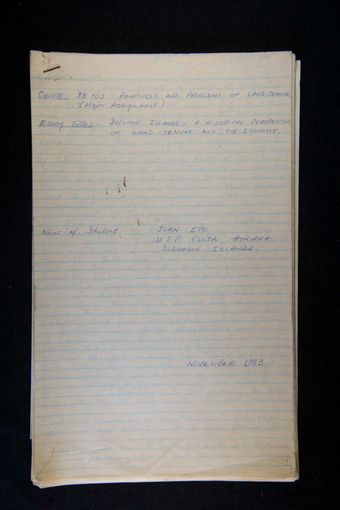 COURSE: SE 103 PRINCIPLES AND PROBLEMS OF LAND TENURE
(Major Assignment.)
Essay Title: SOLOMON ISLANDS: A HISTORICAL PERSPECTIVE
OF LAND TENURE AND THE ECONOMY.
Name of Student: JOHN IPO
U.S.P. Centre, HONIARA
SOLOMON ISLANDS.
NOVEMBER 1983.